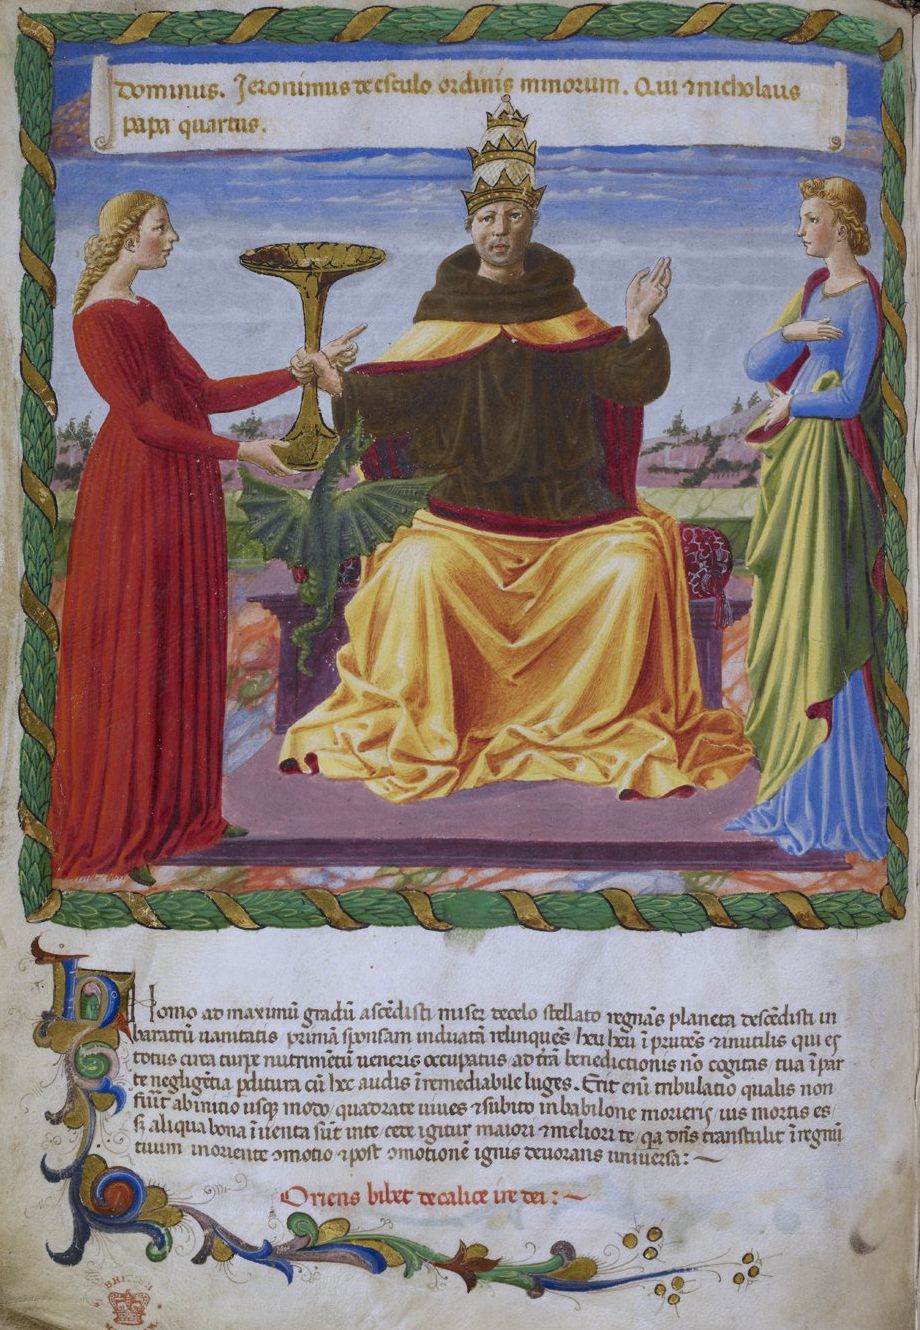 Dominus. Jeronimus de esculo ordinis minorum. Qui ⁊ nicholaus
papa quartus.
Homo ad maximū gradū ascēdisti miser de celo stellato regnās planeta descēdisti in
baratrū uanitatis primā sponsam induatā relinquēs heu heu ī prudēs ⁊ inutilis qui es
totus circa turpe nutrimētū ueneris occupatus ad tātā benedictionis nō cogitas tua ī par
te negligētia pditura cū hec audis īremediabile luges. Erit enī tribulatio qualis non
fuit ab initio usq; modo. quadrate uiues ⁊ subito in babilone morieris, uis mortis es
s; aliqua bona īuenta sūt in te. cede igitur maiori ⁊ meliori te. qa dn̄s transtulit ī regnū
tuum moriente ꝯmotio ⁊ post ꝯmotionē ignis deuorans uniuersa:~
Oriens bibet de calice ire dei:~
BRITISH